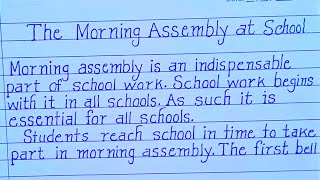 The Morning Assembly at School
Morning assembly is an indispensable
part of school work. School work begins
with it in all schools. As such it is
essential for all schools.
Students reach school in time to take
part in morning assembly. The first bell